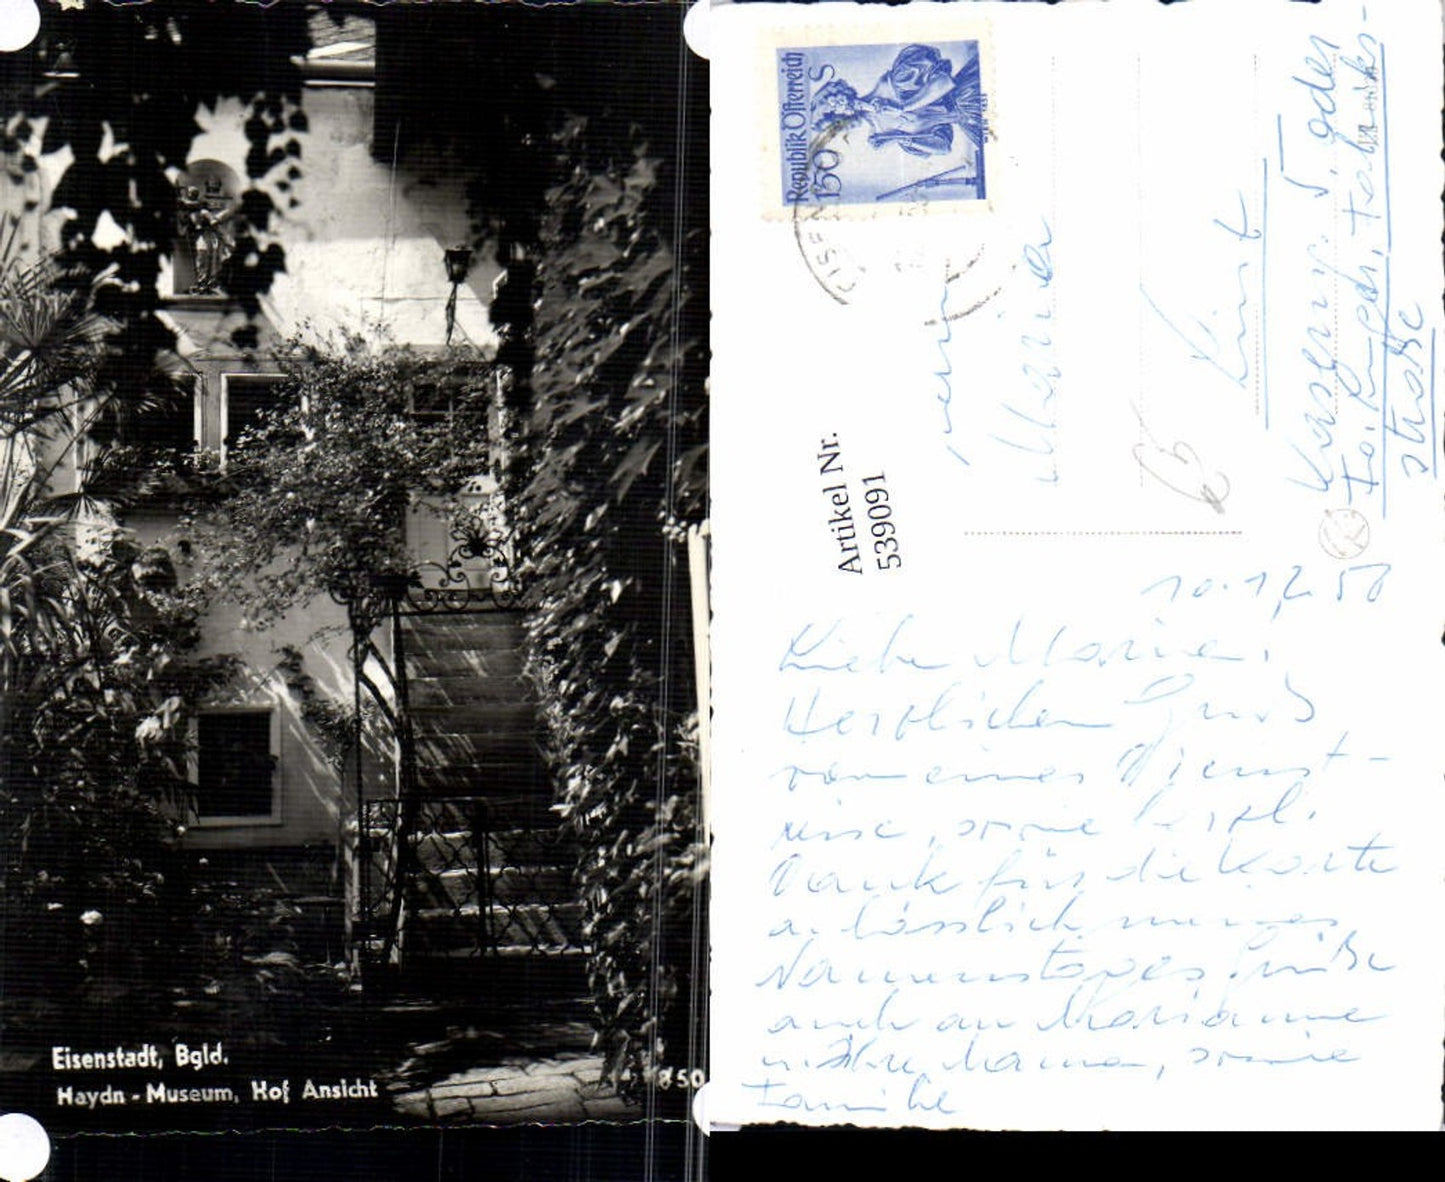 Eisenstadt, Bgld.
Haydn - Museum, Hof Ansicht
850
Republik Österreich
150 S
Artikel Nr.
539091
Maria
10.12.58
Liebe Maria!
Herzlichen Gruß
von einer Dienst-
reise, sowie herzl.
Dank für die Karte
anlässlich meines
Namenstages Grüße
auch an Marianne
u. Ihre Mama, sowie
Familie
straße